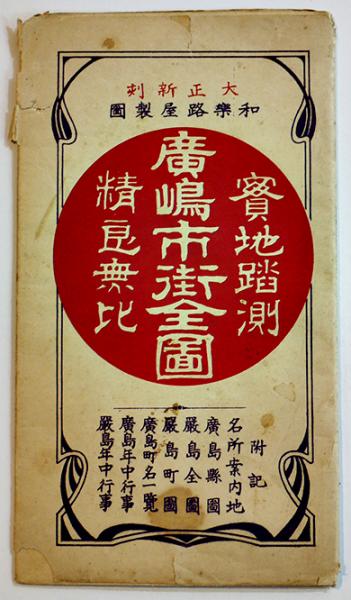 大正新刻
和樂路屋製圖
實地踏測
廣嶋市街全圖
精良無比
附記
名所案内地
廣島縣圖
嚴島全圖
嚴島町圖
廣島町名一覽
廣島年中行事
嚴島年中行事